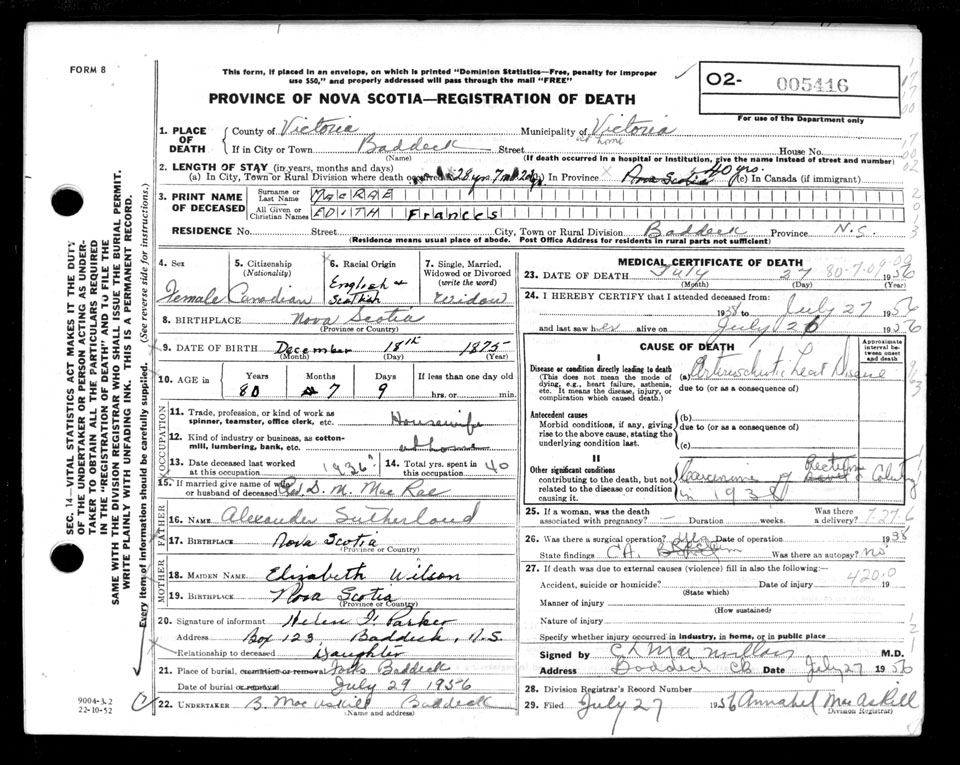 FORM 8
This form, if placed in an envelope, on which is printed "Dominion Statistics—Free, penalty for improper
use $50," and properly addressed will pass through the mail "FREE"
PROVINCE OF NOVA SCOTIA—REGISTRATION OF DEATH
O2- 005416
For use of the Department only
1. PLACE OF DEATH
County of Victoria Municipality of Victoria
at home
If in City or Town Baddeck Street House No.
(Name) (If death occurred in a hospital or institution, give the name instead of street and number)
2. LENGTH OF STAY (in years, months and days)
(a) In City, Town or Rural Division where death occurred 28 yrs. 7 m (b) In Province Nova Scotia 40 yrs. (c) In Canada (if immigrant)
3. PRINT NAME OF DECEASED
Surname or Last Name MacRAE
All Given or Christian Names EDITH Frances
RESIDENCE No. Street City, Town or Rural Division Baddeck Province N.S.
(Residence means usual place of abode. Post Office Address for residents in rural parts not sufficient)
4. Sex
Female
5. Citizenship
(Nationality)
Canadian
6. Racial Origin
English &
Scottish
7. Single, Married,
Widowed or Divorced
(write the word)
Widow
8. BIRTHPLACE Nova Scotia
(Province or Country)
9. DATE OF BIRTH December 18th 1875
(Month) (Day) (Year)
10. AGE in
Years Months Days If less than one day old
80 7 9 hrs. or min.
OCCUPATION
11. Trade, profession, or kind of work as
spinner, teamster, office clerk, etc. Housewife
12. Kind of industry or business, as cotton-
mill, lumbering, bank, etc. at home
13. Date deceased last worked
at this occupation 1936
14. Total yrs. spent in
this occupation 40
15. If married give name of wife
or husband of deceased D. M. MacRae
FATHER
16. NAME Alexander Sutherland
17. BIRTHPLACE Nova Scotia
(Province or Country)
MOTHER
18. MAIDEN NAME Elizabeth Wilson
19. BIRTHPLACE Nova Scotia
(Province or Country)
20. Signature of informant Helen F. Parker
Address Box 123, Baddeck, N.S.
Relationship to deceased Daughter
21. Place of burial, cremation or removal Forks Baddeck
Date of burial or removal July 29 1956
22. UNDERTAKER B. MacAskill Baddeck
(Name and address)
MEDICAL CERTIFICATE OF DEATH
23. DATE OF DEATH July 27 1956
80-7-09
(Month) (Day) (Year)
24. I HEREBY CERTIFY that I attended deceased from:
1938 to July 27 1956
and last saw her alive on July 26 1956
CAUSE OF DEATH
Approximate interval between onset and death
I
Disease or condition directly leading to death
(This does not mean the mode of
dying, e.g., heart failure, asthenia,
etc. It means the disease, injury, or
complication which caused death.)
(a) Arteriosclerotic Heart Disease
due to (or as consequence of)
Antecedent causes
Morbid conditions, if any, giving
rise to the above cause, stating the
underlying condition last.
(b)
due to (or as consequence of)
(c)
II
Other significant conditions
contributing to the death, but not
related to the disease or condition
causing it.
Carcinoma of Rectum Colostomy
in 1938
25. If a woman, was the death
associated with pregnancy? — Duration weeks. Was there a delivery?
727.6
26. Was there a surgical operation? Yes Date of operation 1938
State findings CA. Rectum Was there an autopsy? no
27. If death was due to external causes (violence) fill in also the following:
420.0
Accident, suicide or homicide? Date of injury 19
(State which)
Manner of injury
(How sustained)
Nature of injury
Specify whether injury occurred in industry, in home, or in public place
Signed by C L MacMillan M.D.
Address Baddeck CB Date July 27 1956
28. Division Registrar's Record Number
29. Filed July 27 1956 Annabel MacAskill
(Division Registrar)
SEC. 14—VITAL STATISTICS ACT MAKES IT THE DUTY
OF THE UNDERTAKER OR PERSON ACTING AS UNDER-
TAKER TO OBTAIN ALL THE PARTICULARS REQUIRED
IN THE "REGISTRATION OF DEATH" AND TO FILE THE
SAME WITH THE DIVISION REGISTRAR WHO SHALL ISSUE THE BURIAL PERMIT.
WRITE PLAINLY WITH UNFADING INK. THIS IS A PERMANENT RECORD.
Every item of information should be carefully supplied. (See reverse side for instructions.)
9004-3.2
22-10-52